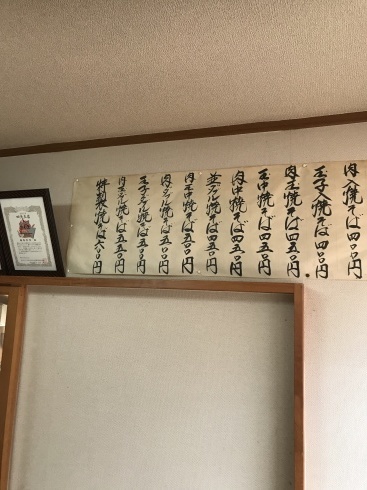 肉入焼そば四〇〇円
玉子焼そば四〇〇円
肉玉焼そば四五〇円
玉中焼そば四五〇円
肉中焼そば四五〇円
並ダブル焼そば四五〇円
肉玉中焼そば五〇〇円
肉ダブル焼そば五五〇円
玉子ダブル焼そば五五〇円
肉玉ダブル焼そば五五〇円
特製焼そば六〇〇円